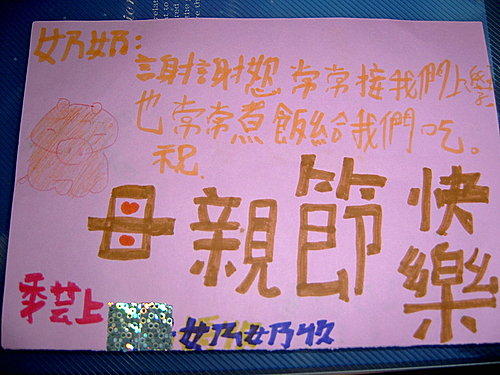 奶奶:
謝謝您常常接我們上學
也常常煮飯給我們吃。
祝
母親節快樂
上
奶奶收